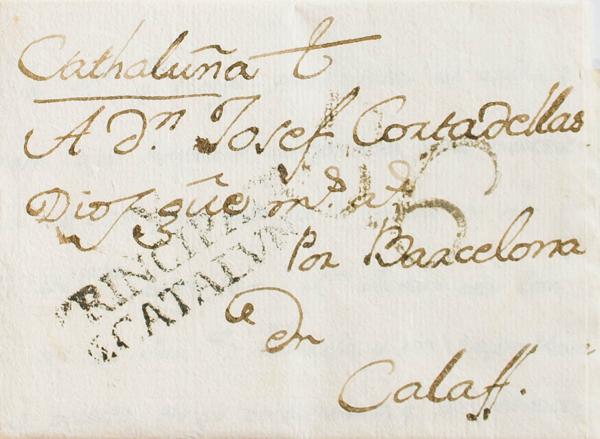 Cathaluña
A Dn. Josef Cortadellas
Dios gũe ms. as.
Por Barcelona
en
Calaff.
PRINCIPAD
CATALUÑA